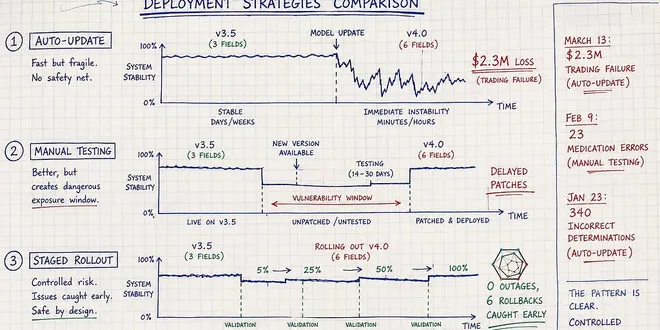 DEPLOYMENT STRATEGIES COMPARISON
1 AUTO-UPDATE
Fast but fragile.
No safety net.
SYSTEM
STABILITY
100%
0%
v3.5
(3 FIELDS)
MODEL UPDATE
v4.0
(6 FIELDS)
$2.3M LOSS
(TRADING FAILURE)
STABLE
DAYS/WEEKS
IMMEDIATE INSTABILITY
MINUTES/HOURS
TIME
2 MANUAL TESTING
Better, but
creates dangerous
exposure window.
SYSTEM
STABILITY
100%
0%
v3.5
(3 FIELDS)
NEW VERSION
AVAILABLE
TESTING
(14-30 DAYS)
v4.0
(6 FIELDS)
VULNERABILITY WINDOW
DELAYED
PATCHES
LIVE ON v3.5
UNPATCHED/UNTESTED
PATCHED & DEPLOYED
TIME
3 STAGED ROLLOUT
Controlled risk.
Issues caught early.
Safe by design.
SYSTEM
STABILITY
100%
0%
v3.5
(3 FIELDS)
ROLLING OUT v4.0
(6 FIELDS)
5% → 25% → 50% → 100%
0 OUTAGES,
6 ROLLBACKS
CAUGHT EARLY
VALIDATION
VALIDATION
VALIDATION
VALIDATION
TIME
MARCH 13:
$2.3M
TRADING FAILURE
(AUTO-UPDATE)
FEB 9:
23
MEDICATION ERRORS
(MANUAL TESTING)
JAN 23:
340
INCORRECT
DETERMINATIONS
(AUTO-UPDATE)
THE PATTERN IS
CLEAR.
CONTROLLED